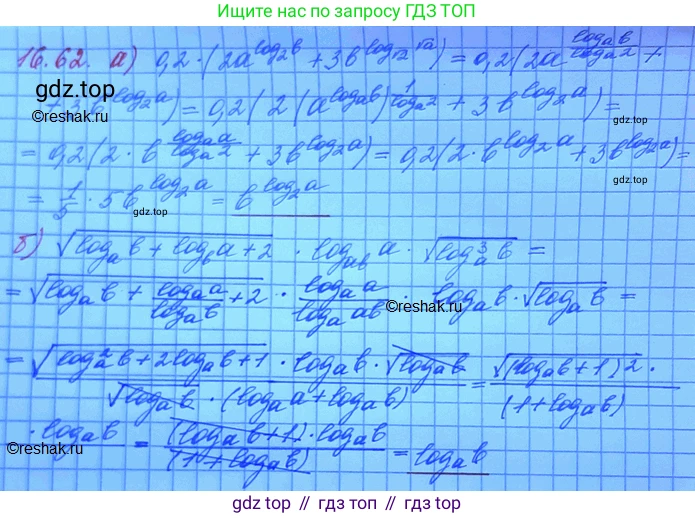 Ищет нас по запросу ГДЗ ТОП
16.62. а) 0,2·(2a^{log₂b} + 3b^{log_{√2}√a}) = 0,2(2a^{log_a b / log_a 2} +
gdz.top
+ 3b^{log₂a}) = 0,2(2(a^{log_a b})^{1/log_a 2} + 3b^{log₂a}) =
©reshak.ru
gdz.top
= 0,2(2·b^{log_a a / log_a 2} + 3b^{log₂a}) = 0,2(2·b^{log₂a} + 3b^{log₂a}) =
= 1/5 · 5b^{log₂a} = b^{log₂a}
gdz.top
б) √(log_a b + log_b a + 2) · log_{ab} a · √(log_a³ b) =
= √(log_a b + log_a a / log_a b + 2) · log_a a / log_a ab · log_a b · √(log_a b) =
©reshak.ru
= √(log_a² b + 2log_a b + 1) · log_a b · √(log_a b) / (√(log_a b) · (log_a a + log_a b)) = √((log_a b + 1)²) · / (1 + log_a b)
· log_a b = (log_a b + 1) · log_a b / (1 + log_a b) = log_a b
©reshak.ru
gdz.top // гдз топ // gdz top